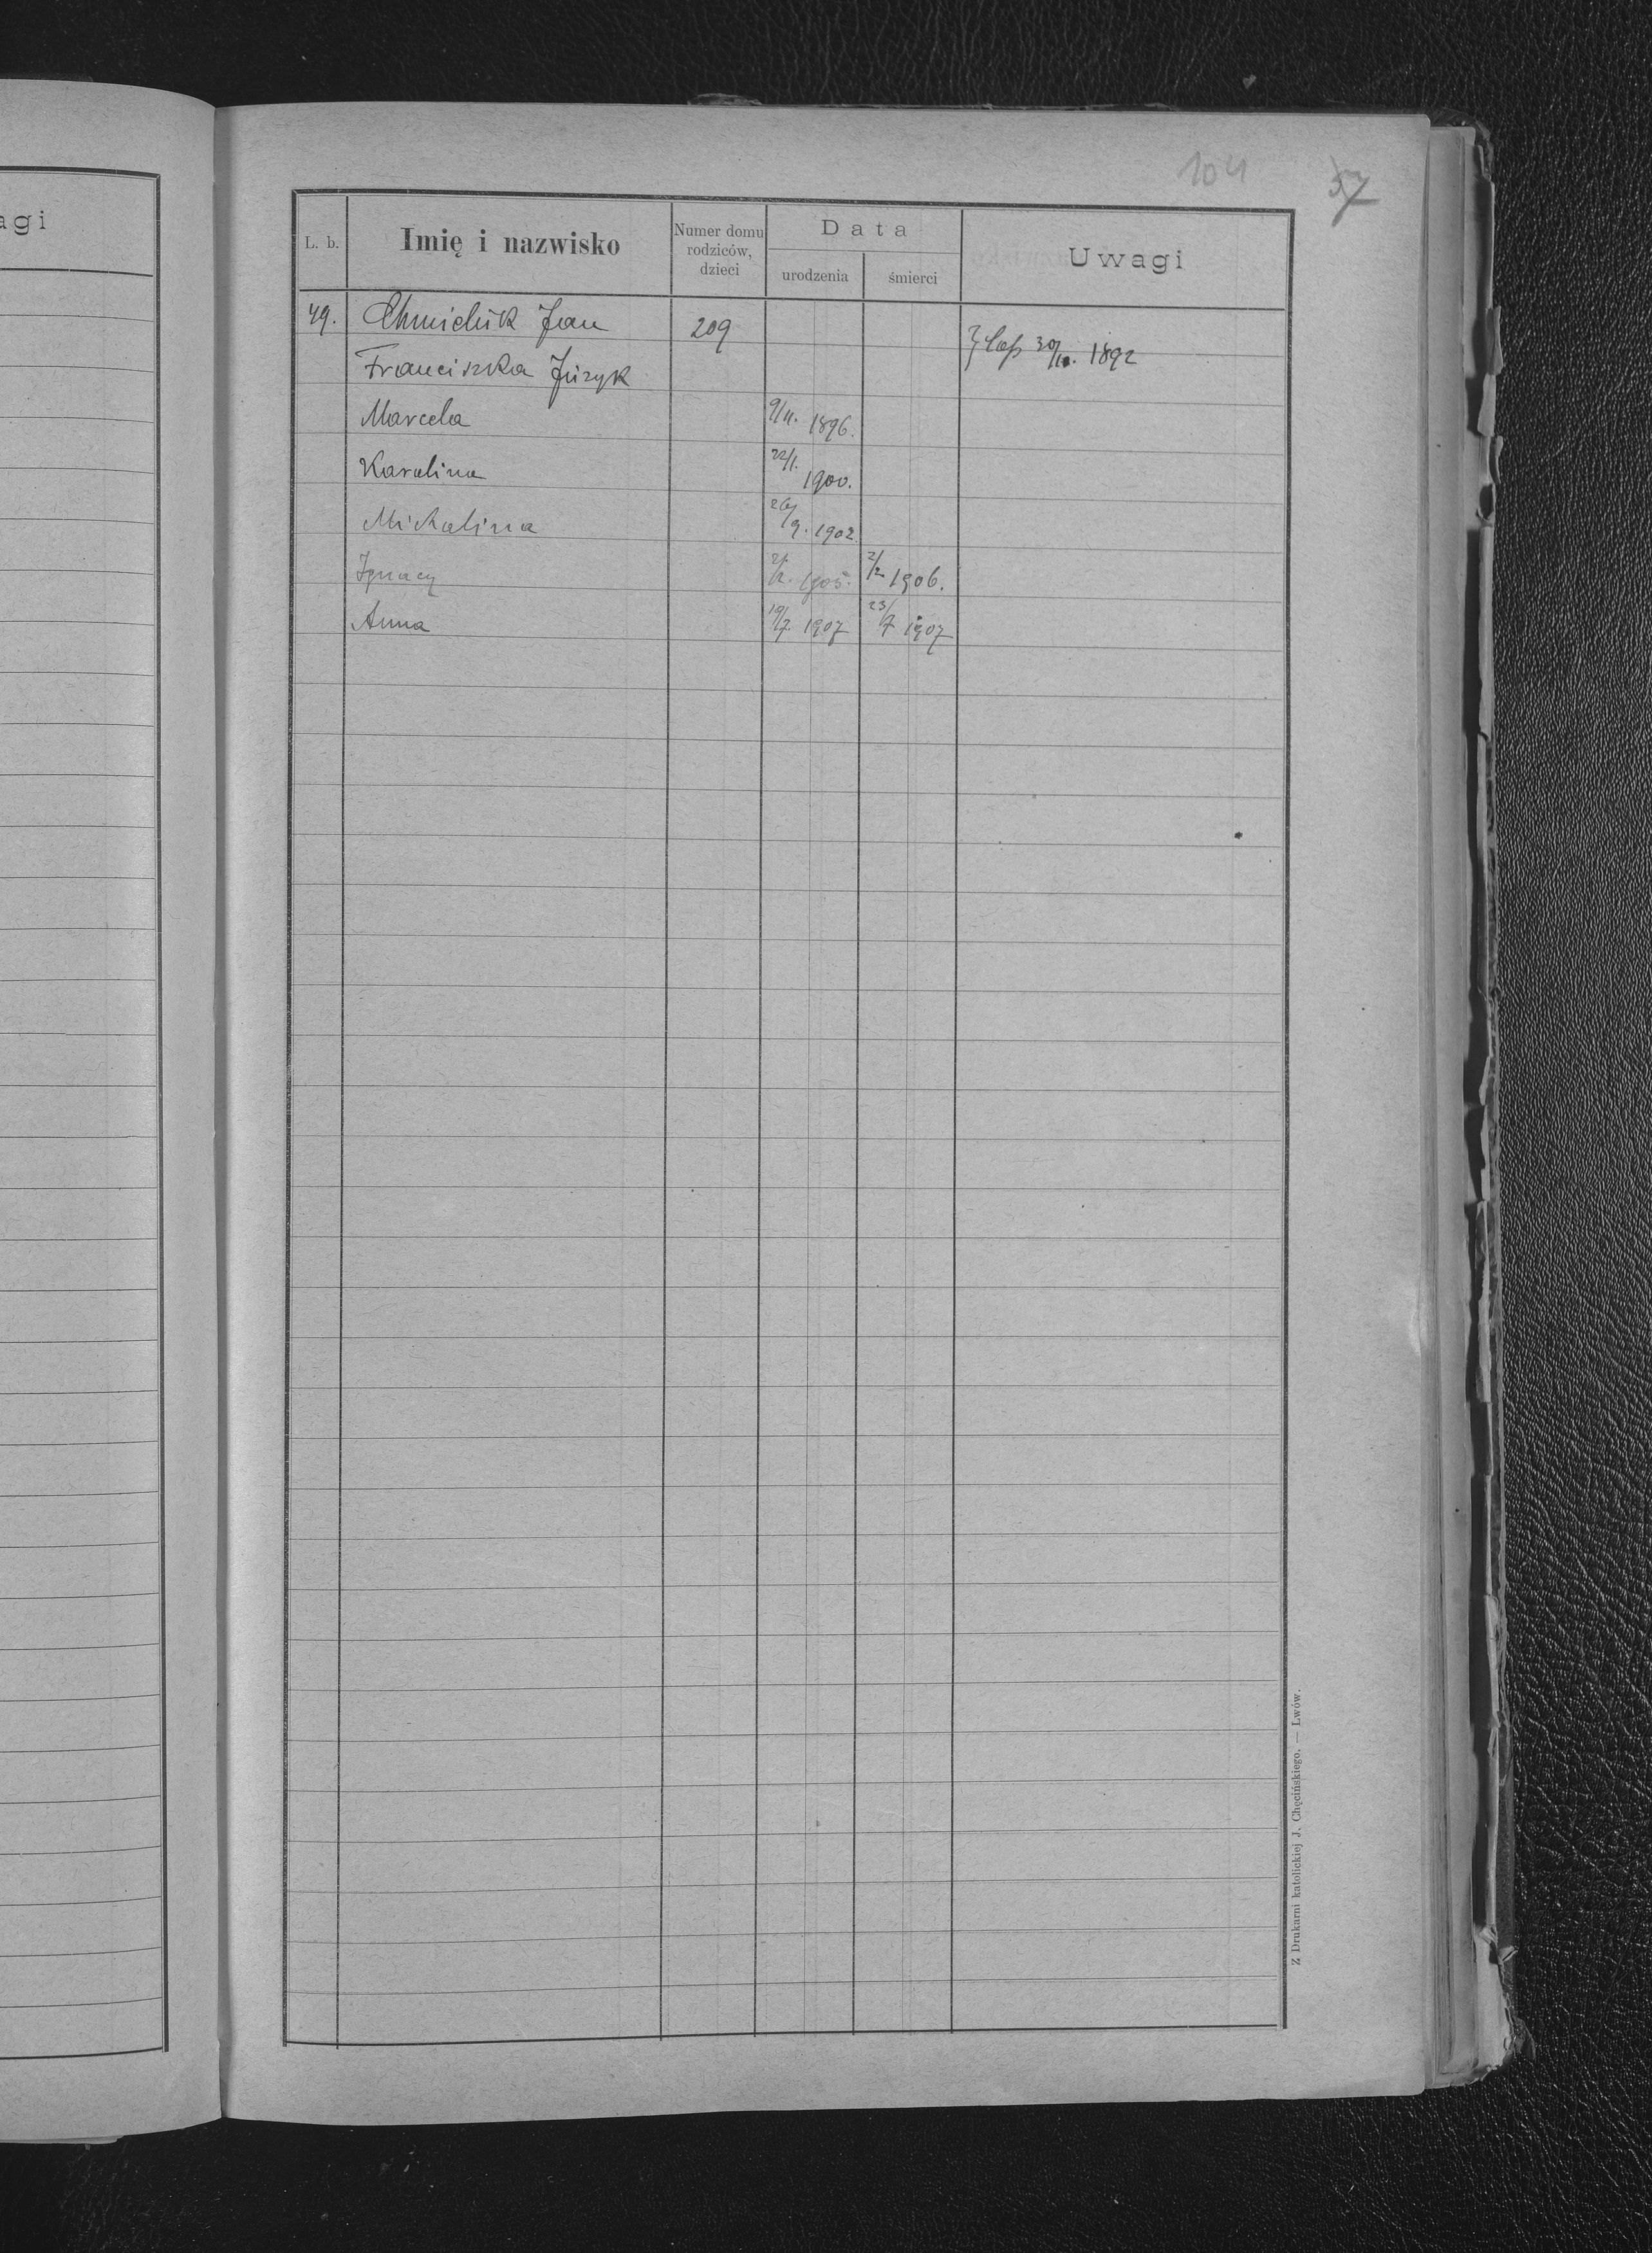 agi
104 57
L. b. Imię i nazwisko Numer domu rodziców, dzieci Data urodzenia śmierci Uwagi
49. Chmieluk Jan 209
Franciszka Juzyk } Cop 30/10. 1892
Marcela 9/11. 1896.
Karolina 22/1. 1900.
Michalina 26/9. 1902
Ignacy 2/2. 1905. 2/2 1906.
Anna 19/7. 1907 23/7 1907
Z Drukarni katolickiej J. Chęcińskiego. — Lwów.